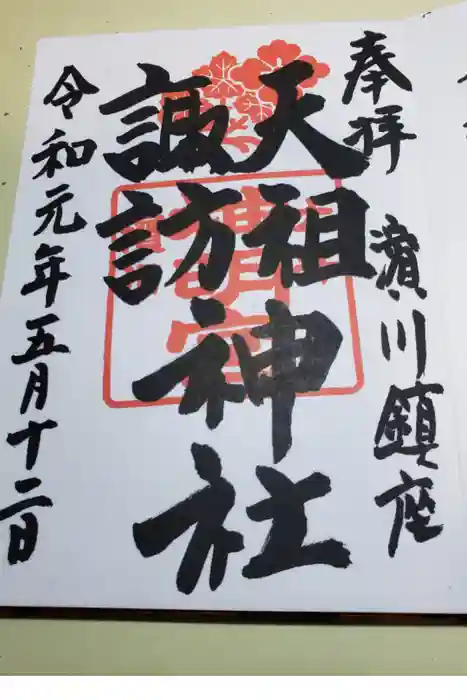 奉拝 濱川鎮座
天祖
諏訪
神社
令和元年五月十二日